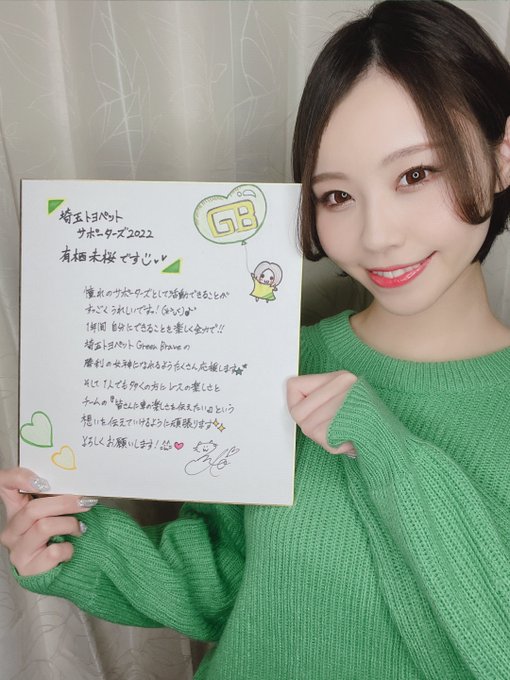 GB
埼玉トヨペット
サポーターズ2022
有栖未桜です
憧れのサポーターズとして活動できることが
すっごくうれしいですっ!
1年間 自分にできることを楽しく全力で!!
埼玉トヨペット Green Braveの
勝利の女神になれるようたくさん応援します
そして1人でも多くの方にレースの楽しさと
チームの『皆さんに車の楽しさを伝えたい』という
想いを伝えていけるように頑張ります
よろしくお願いします!